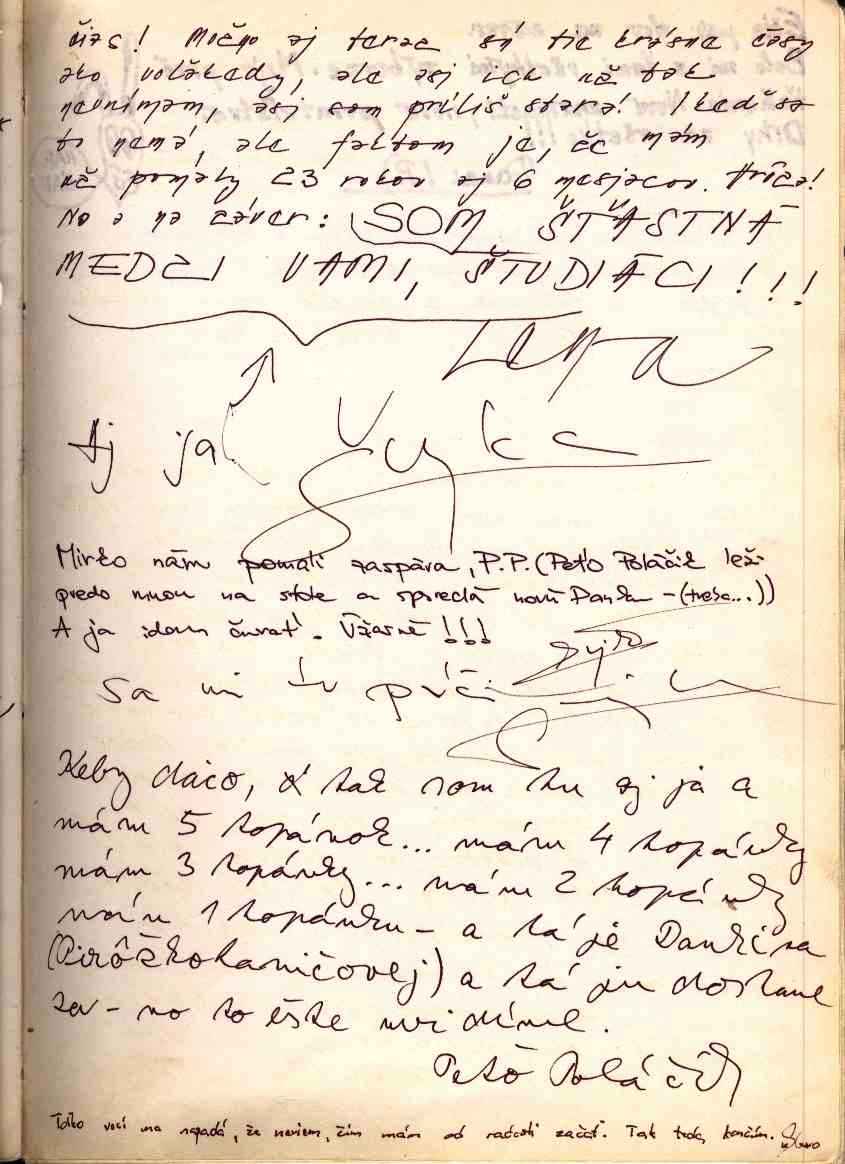 čias! Možno aj teraz sú tie krásne časy
ako volakedy, ale asi ich už tak
nevnímam, asi som príliš stará! I keď sa
to nemá, ale faktom je, že mám
už pomaly 23 rokov aj 6 mesiacov. Hrôza!
No a na záver: SOM ŠŤASTNÁ
MEDZI VAMI, ŠTUDIÁCI!!!
Lena
Aj ja
Mirko nám pomali zaspáva, P.P. (Peťo Poláčik leží
predo mnou na stole a spriedá novú Danku - (treba...))
A ja idem čúrať. Úžasné!!!
Sa mi tu páči
Keby dačo, tak som tu aj ja a
mám 5 topánok... mám 4 topánky
mám 3 topánky... mám 2 topánky
mám 1 topánku - a tá je Dankina
(Pirôžkohaničovej) a tá ju dostane
za - no to ešte uvidíme.
Peťo Poláčik
Toľko vecí ma napadá, že neviem, čím mám od radosti začať. Tak teda, končím.